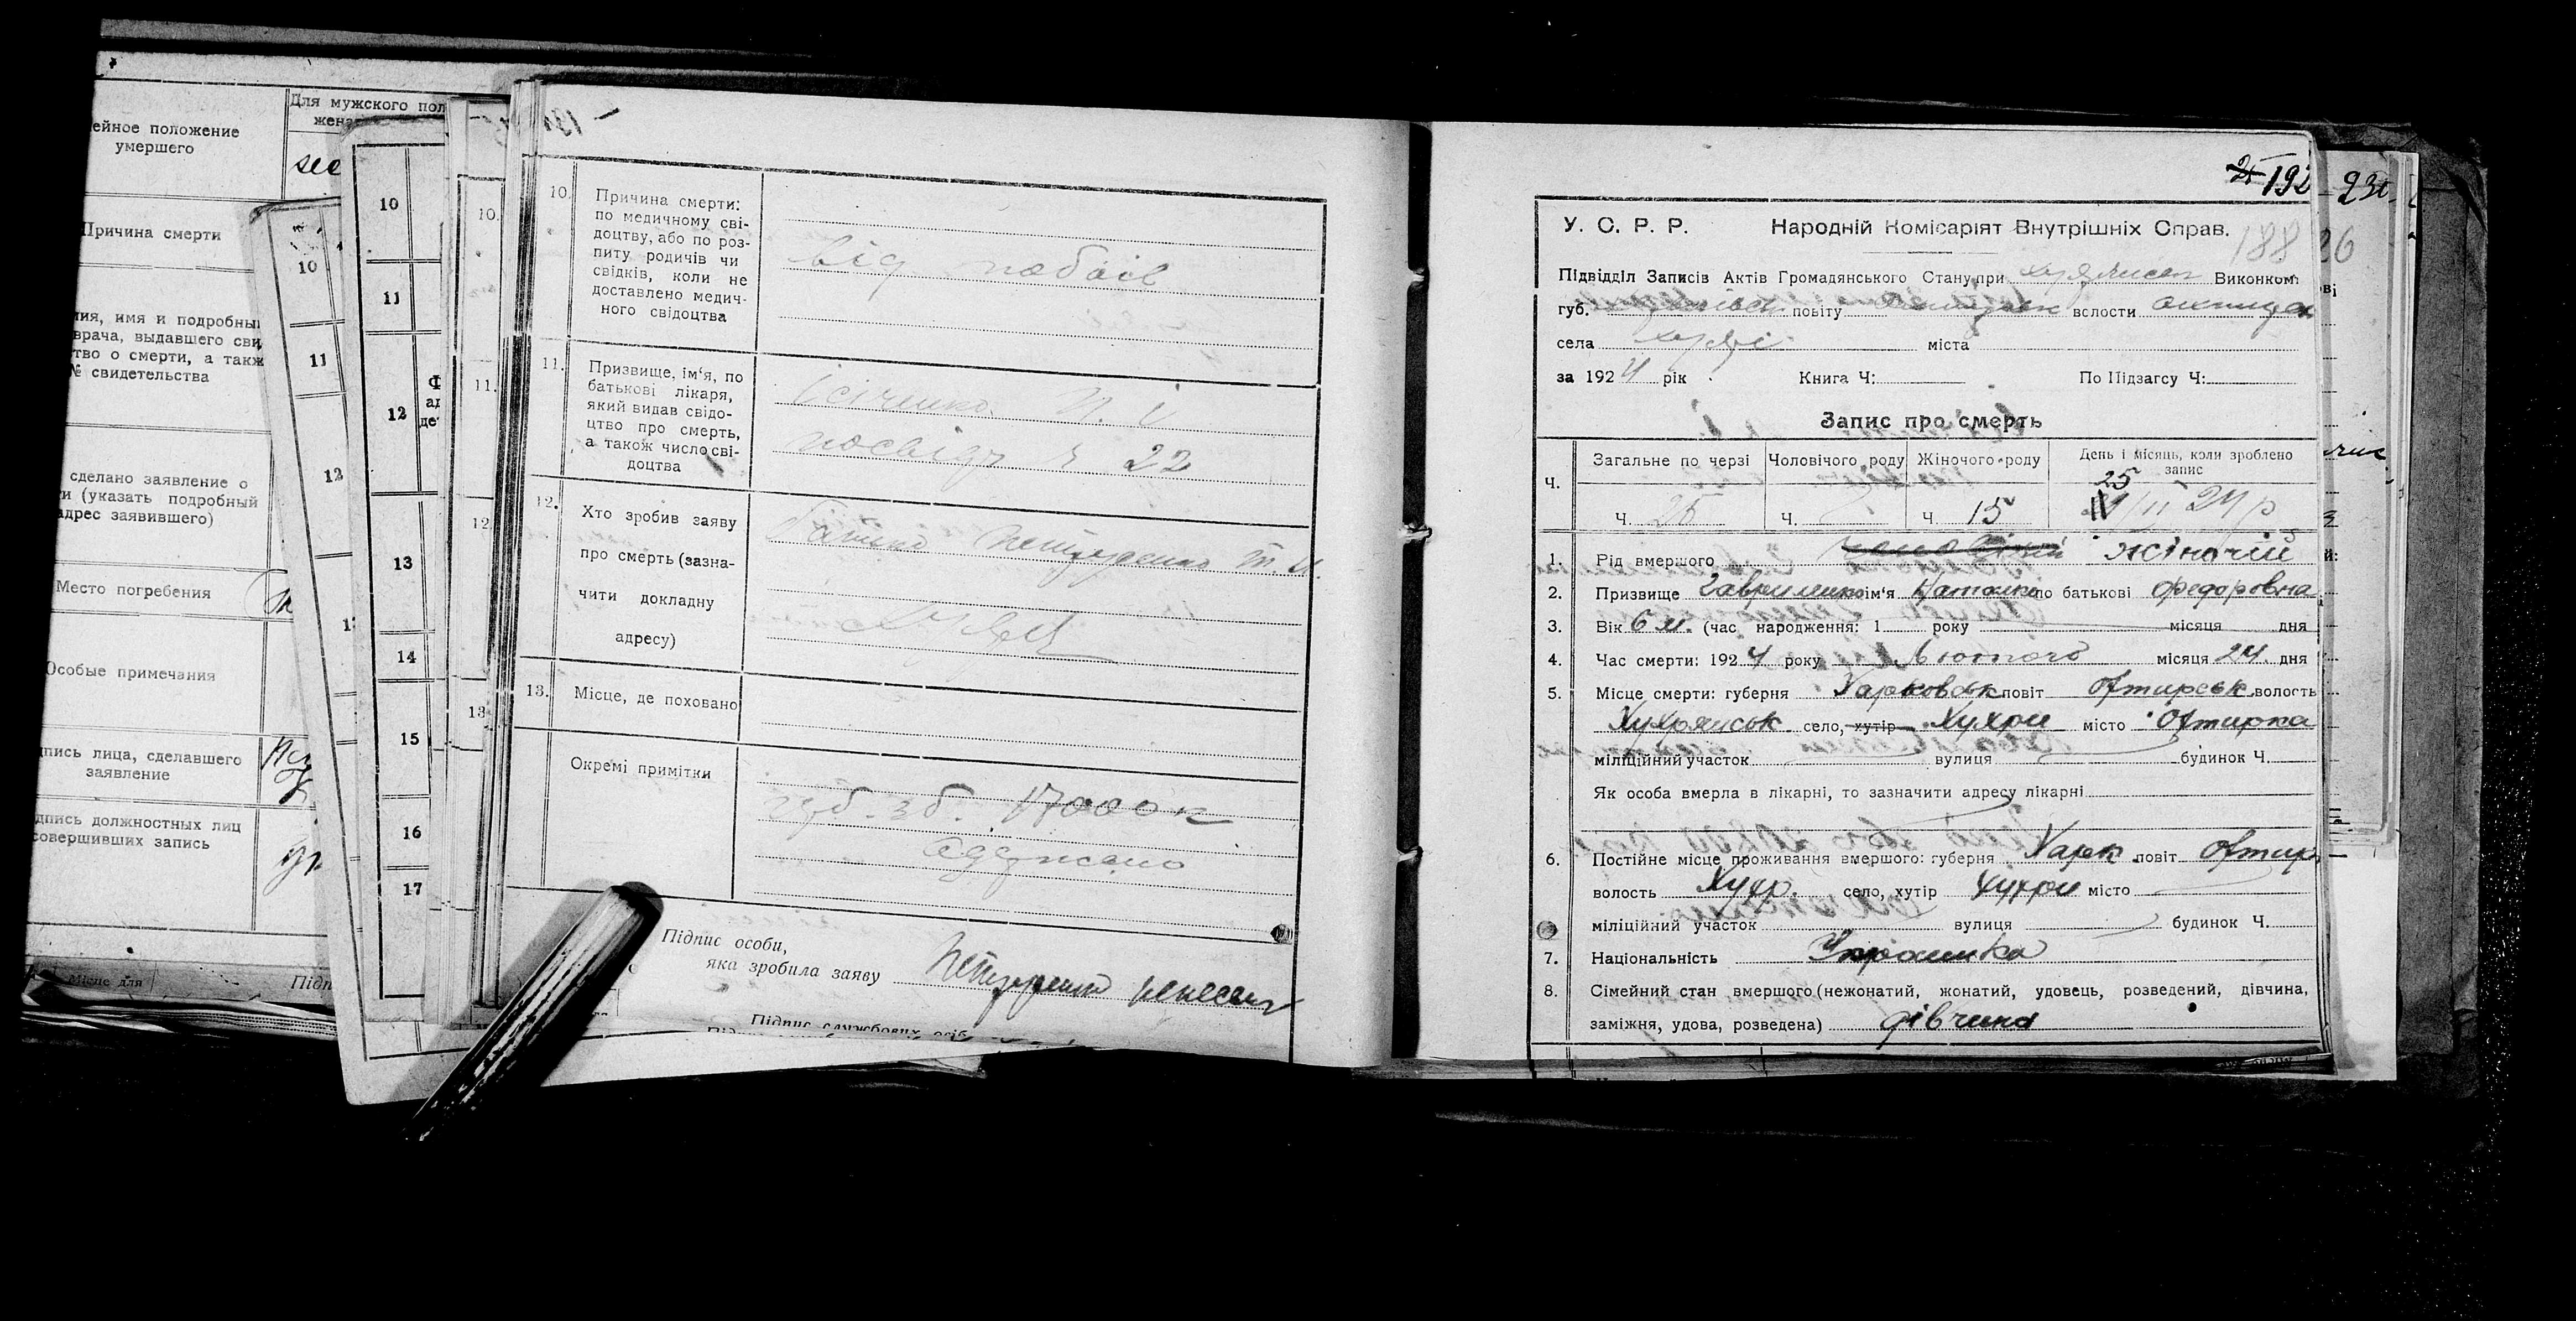 ейное положение
умершего
Для мужского пол
жена
Причина смерти
ния, имя и подробны
врача, выдавшего сви
тво о смерти, а такж
№ свидетельства
сделано заявление о
и (указать подробный
адрес заявившего)
Место погребения
Особые примечания
пись лица, сделавшего
заявление
дпись должностных лиц
совершивших запись
10
11
12
10
11
12
13
14
15
16
17
10.
11.
12
13
10.
Причина смерти:
по медичному сві-
доцтву, або по роз-
питу родичів чи
свідків, коли не
доставлено медич-
ного свідоцтва
від побоів
11.
Призвище, ім'я, по
батькові лікаря,
який видав свідо-
цтво про смерть,
а також число сві-
доцтва
Ісіченко П. І
посвідч ч 22
12.
Хто зробив заяву
про смерть (зазна-
чити докладну
адресу)
батько
13.
Місце, де поховано
Окремі примітки
зб. 17000 к
одержано
Підпис особи,
яка зробила заяву
Підпис службових осіб
192
188
У. С. Р. Р. Народній Комісаріят Внутрішніх Справ.
Підвідділ Записів Актів Громадянського Стану при Виконком
губ. повіту волости
села Хухрі міста
за 1924 рік Книга Ч: По Підзагсу Ч:
Запис про смерть
Ч.
Загальне по черзі Чоловічого роду Жіночого роду День і місяць, коли зроблено запис
Ч. 25 Ч. Ч 15 25/II 24 р
1. Рід вмершого жіночій
2. Призвище Гавриленко ім'я Наталка по батькові Федоровна
3. Вік 6 м. (час народження: 1 року місяця дня
4. Час смерти: 1924 року Лютого місяця 24 дня
5. Місце смерти: губерня Харковськ повіт Охтирськ волость
Хухрянськ село, хутір Хухри місто Охтирка
міліційний участок вулиця будинок Ч.
Як особа вмерла в лікарні, то зазначити адресу лікарні
6. Постійне місце проживання вмершого: губерня Харк повіт Охтир
волость Хухр. село, хутір Хухри місто
міліційний участок вулиця будинок Ч.
7. Національність Украинка
8. Сімейний стан вмершого (нежонатий, жонатий, удовець, розведений, дівчина,
заміжня, удова, розведена) дівчина